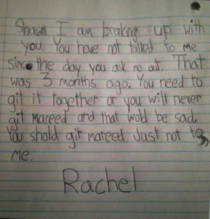 Shawn I am braking up with
you. You have not talked to me
since the day you ask me out. That
was 3 months ago. You need to
git it together or you will never
git mareed and that wold be sad.
You shold git mareed Just not to
me.
Rachel